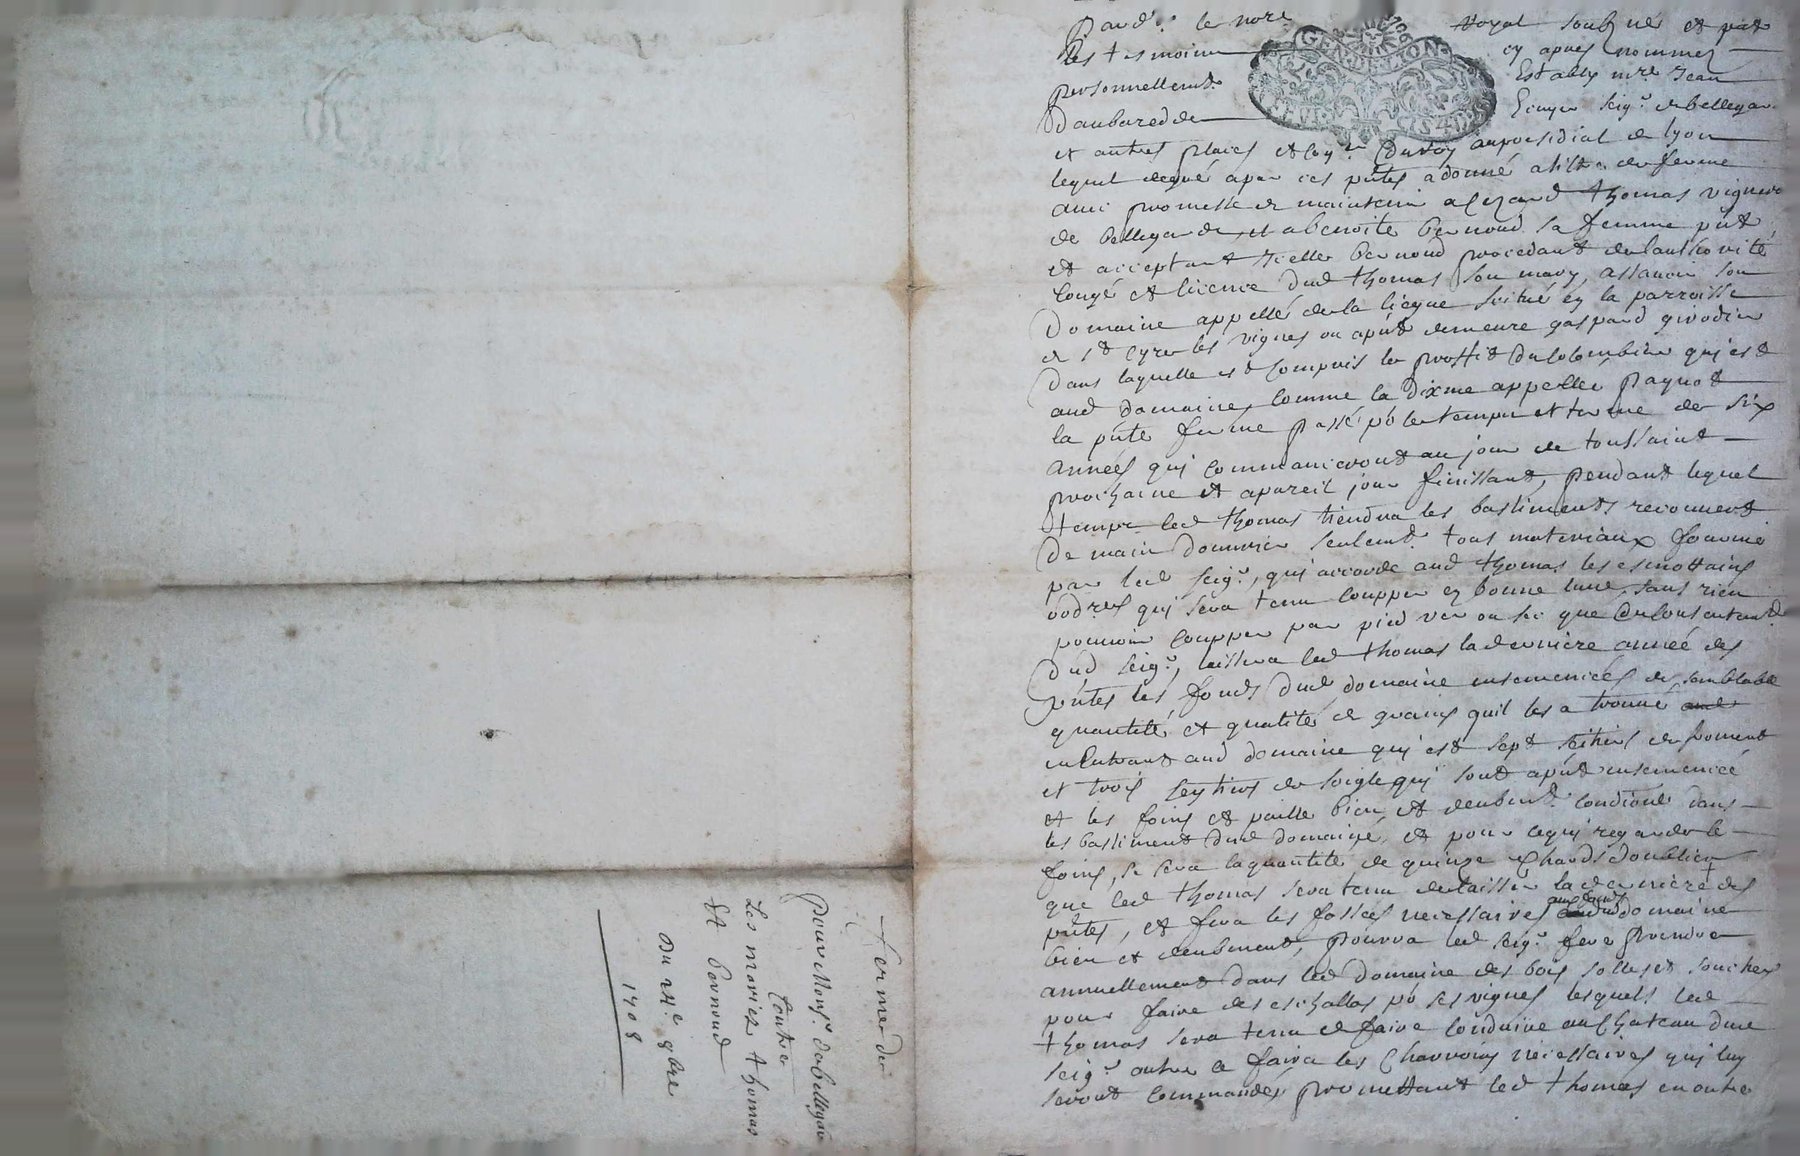 Pard.t le nore Royal soubz né et pnt
les tesmoins cy apres nommez
personnellemt Estably mre Jean
Daubaredde Ecuyer seigr de bellegar
et autres places et Coner Du roy au presidial de lyon
lequel degré apar ces pntes a donné a tiltre de ferme
avec promesse de maintenir a Thomas vigneron
de bellegarde, et a benoite bernoud sa femme pnt
et acceptant Icelle bernoud procedant de lauthorité
Congé et licence dud thomas son mary, assavoir son
Domaine appellé de la scitué en la parroisse
de St Cyre les vignes ou apnt demeure gaspard girodin
Dans laquelle est Compris le proffit Du Colombier qui est
aud domaine, Comme la Dixme appellée paquet
la pnte ferme passé pr le temps et terme de Six
années qui Commanceront au jour de toussaint
prochaine et apareil jour finissant, pendant lequel
temps led thomas tiendra les bastiments recouvert
De main Douvrier seulemt tous materiaux fournis
par led seigr, qui accorde aud thomas les
qui sera tenu Coupper en bonne lune, sans rien
pouvoir Coupper par pied ver ou sec que Du Consentemt
Dud seigr, laissera led thomas la derniere année des
pntes les fonds Dud domaine ensemencées de semblable
quantité et qualité de grains quil les a trouvé
en Entrant aud domaine qui est sept seitiers de froment
et trois seytiers de soigle qui sont apnt ensemencé
et les foins et paille bien et deubemt Conditioné dans
les bastiment Dud domaine, et pour ce qui regarde le
foins, se sera la quantité de quinze Chards
que led thomas sera tenu de laisser la derniere des
pntes, et fera les fosses necessaires aux fonds dud domaine
bien et deubment, pourra led seigr fere prendre
annuellement dans led domaine des bois solles et souches
pour faire des eschallas pr ses vignes lesquels led
thomas sera tenu de faire Conduire au Chateau dud
seigr outre ce faira les Charrois necessaires qui luy
seront Commandés promettant led thomas en outre
ferme de
pour Monsr de bellegarde
Contre
Les mariez thomas
Et bernoud
Du 24e 8bre
1708
GEN DE LYON